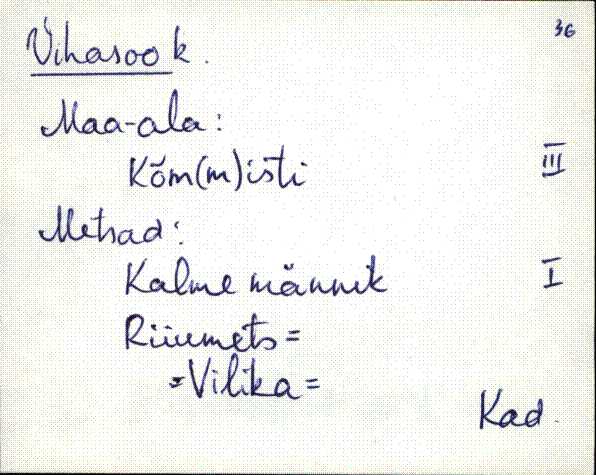 36
Vihasoo k.
Maa-ala:
Kõm(m)isti III
Metsad:
Kalme männik I
Riiumets =
= Vilika =
Kad.